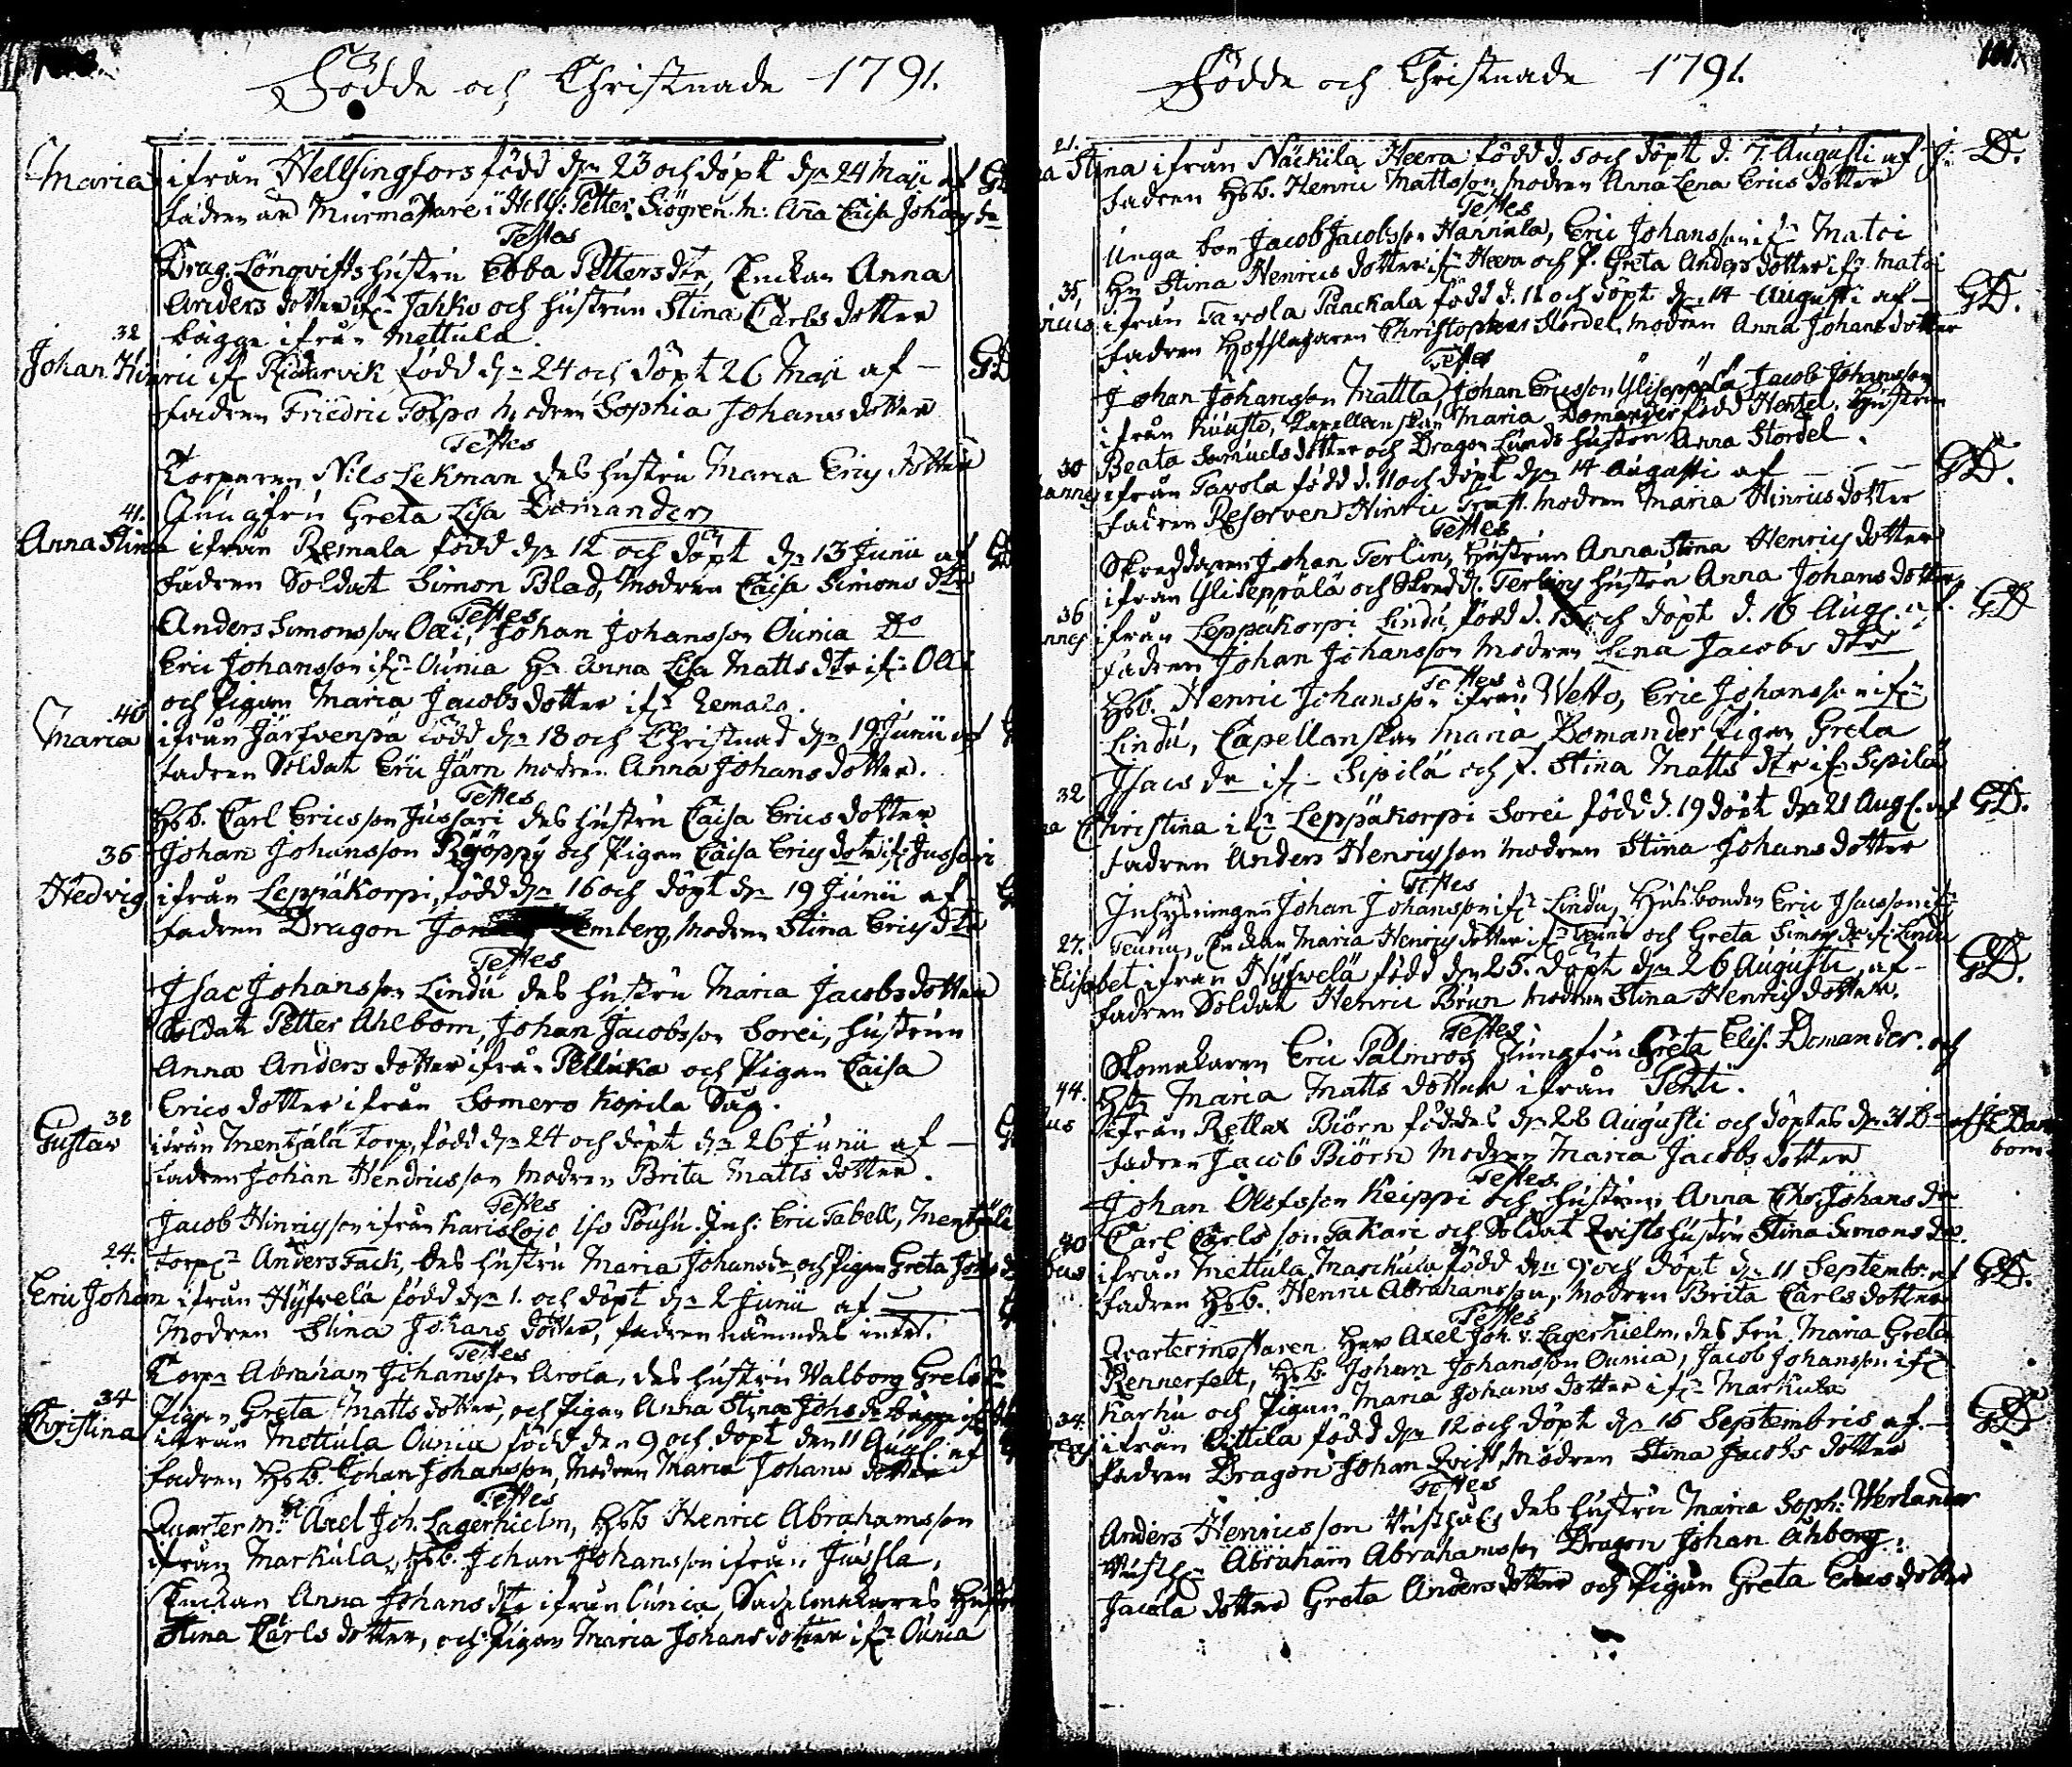 Födde och Christnade 1791.
Maria ifrån Hellsingfors född dn 23 och döpt dn 24 Maji af GD
fadren Murmästare i Hells: Petter Siögren. M: Anna Caisa Johans dr
Testes
Drag. Lönqvists hustru Ebba Petters dtr, Enckan Anna
Anders dotter ifn Jahko och hustrun Stina Carls dotter
bägge ifrån Mettula.
32
Johan Hinric if Ridarvik född dn 24 och döpt 26 Maji af — GD
fadren Friedric Polpo Modren Sophia Johans dotter
Testes
Torparen Nils Lekman des hustru Maria Erics dotter
Jungfru Greta Lisa Domander
41.
Anna Stina ifrån Remala född dn 12 och döpt dn 13 Junii af
fadren Soldat Simon Blad, Modren Caisa Simons dtr
Testes
Anders Simonsson Olli, Johan Johansson Ounia Do
Eric Johansson ifn Ounia Hu Anna Lisa Matts dtr ifn Olli
och Pigan Maria Jacobs dotter ifn Remala.
40
Maria ifrån Järfvenpä född dn 18 och Christnad dn 19 Junii af
fadren Soldat Eric Järn modren Anna Johans dotter.
Testes
Hsb. Carl Ericsson Jussari des hustru Caisa Erics dotter
Johan Johansson Röyöppy och Pigan Caisa Erics dotr if Jussari
35
Hedvig ifrån Leppäkorpi, född dn 16 och döpt dn 19 Junii af
fadren Dragon Lemberg, Modren Stina Erics dtr
Testes
Isac Johansson Lindu des hustru Maria Jacobs dotter
Soldat Petter Ahlbom, Johan Jacobsson Sorei, hustrun
Anna Anders dotter ifrån Pelluka och Pigan Caisa
Erics dotter ifrån Somero Kopila Såg.
38
Gustav ifrån Mentzälä torp, född dn 24 och döpt dn 26 Junii af —
fadren Johan Hendricsson Modren Brita Matts dotter.
Testes
Jacob Hinricsson ifrån Karislojo Iso Pousu. Inh: Eric Tabell, Mentzälä
torpn Anders Fack, des hustru Maria Johans dr, och Pigan Greta
24.
Eric Johan ifrån Hyfvelä född dn 1. och döpt dn 2 Junii af —
Modren Stina Johans dotter, fadren nämndes intet.
Testes
Torpn Abraham Johansson Arola, des hustru Valborg
Pigan Greta Matts dotter, och Pigan Anna Stina Johs dr bägge
34
Christina ifrån Mettula Ounia född den 9 och döpt den 11 Augs. af
fadren Hsb. Johan Johansson, Modren Maria Johans dotter
Testes
Quarterm: Axel Joh. Lagerhielm, Hsb Henric Abrahamsson
ifrån Markula, Hsb. Johan Johansson ifrån Jussla,
Enckan Anna Johans dtr ifrån Ounia, Sadelmakares Hustru
Stina Carls dotter, och Pigan Maria Johans dotter ifn Ounia
101.
Födde och Christnade 1791.
21.
Stina ifrån Näckila Heera född d. 5 och döpt d. 7. Augusti af D.
fadren Hsb. Henric Mattsson, modren Anna Lena Erics dotter
Testes
Unga bon Jacob Jacobsson Hannula, Eric Johansson ifn Matoi
Hu Stina Henrics dotter ifn Heera och P. Greta Anders dotter ifn Matoi
35,
ifrån Tavola Paackala född d. 11 och döpt dn 14 Augusti af — GD.
fadren Hofslagaren Christopher Stordel, modren Anna Johans dotter
Testes
Johan Johansson Mattla, Johan Ericsson Yliseppälä Jacob Johansson
ifrån Kuusto, Kapellanskan Maria Domander född Hentzel. Hustrun
Beata Samuels dotter och Dragon Lunds hustru Anna Stordel.
30
ifrån Tavola född d. 11 och döpt dn 14 Augusti af — GD.
fadren Reserven Hinric Trast. Modren Maria Hinrics dotter
Testes
Skreddaren Johan Terlin, hustrun Anna Stina Henrics dotter
ifrån Yliseppälä och Skredd. Terlins hustru Anna Johans dotter
36
ifrån Leppäkorpi Lindu född d. 15 och döpt d. 16 Augs. af. GD
fadren Johan Johansson Modren Lena Jacobs dtr
Testes
Hsb. Henric Johansson ifrån Wetto, Eric Johansson ifn
Lindu, Capellanskan Maria Domander Pigan Greta
Isacs dr ifn Sepilä och P. Stina Matts dtr ifn Sepilä
32
Christina ifn Leppäkorpi Sorei född d. 19 döpt dn 21 Augs. af GD.
fadren Anders Henricsson modren Stina Johans dotter
Testes
Inhysningen Johan Johansson ifn Lindu, Husbonden Eric Isacsson ifn
Teuria, Enckan Maria Henrics dotter ifn Teuria och Greta Simons dr if Lindu
27.
Elisabet ifrån Hyfvelä född dn 25. döpt dn 26 Augusti, af — GD.
fadren Soldat Henric Brun modren Stina Henrics dotter.
Testes
Skomakaren Eric Palmros Jungfru Greta Elis. Domander. och
Hu Maria Matts dotter ifrån Tehti.
44.
ifrån Retlax Biörn föddes dn 28 Augusti och döptes dn 31 Do af
fadren Jacob Biörn Modren Maria Jacobs dotter
Testes
Johan Olofsson Keippi och hustrun Anna Chr. Johans dr
Carl Carlsson Takari och Soldat Qvists hustru Stina Simons dr.
40
ifrån Mettula Marckula född dn 9 och döpt dn 11 Septembr. af GD.
fadren Hsb. Henric Abrahamsson, Modren Brita Carls dotter
Testes
Qvartermästaren Herr Axel Joh. v. Lagerhielm, des fru Maria Greta
Rennerfelt, Hsb. Johan Johansson Ounia, Jacob Johansson ifn
Karhu och Pigan Maria Johans dotter ifn Markula
34.
ifrån Cittila född dn 12 och döpt dn 15 Septembris af. — GD
fadren Dragon Johan Qvist, Modren Stina Jacobs dotter
Testes
Anders Henricsson des hustru Maria Soph: Werlander
Abraham Abrahamsson Dragon Johan Åhborg,
Jacula dotter Greta Anders dotter och Pigan Greta Erics dotter